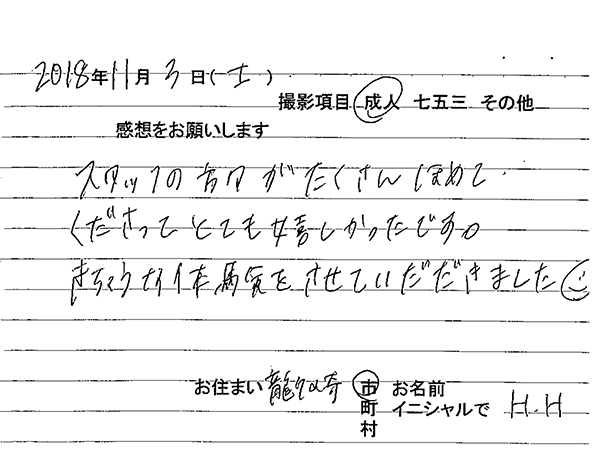 2018年11月3日(土)
撮影項目 成人 七五三 その他
感想をお願いします
スタッフの方々がたくさんほめて
くださってとても嬉しかったです。
きちょうな体験をさせていただだきました
お住まい 龍ケ崎 市 お名前
町 イニシャルで H.H
村